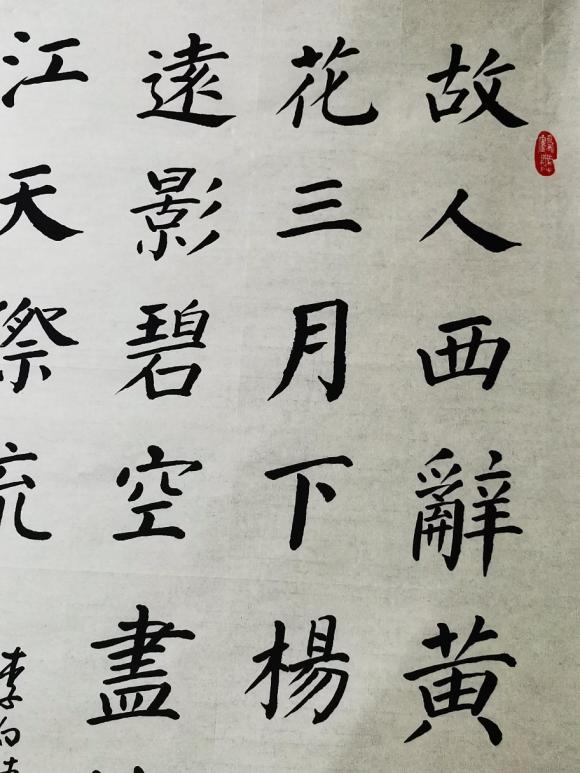 故人西辭黃
花三月下楊
遠影碧空盡
江天際流
李白